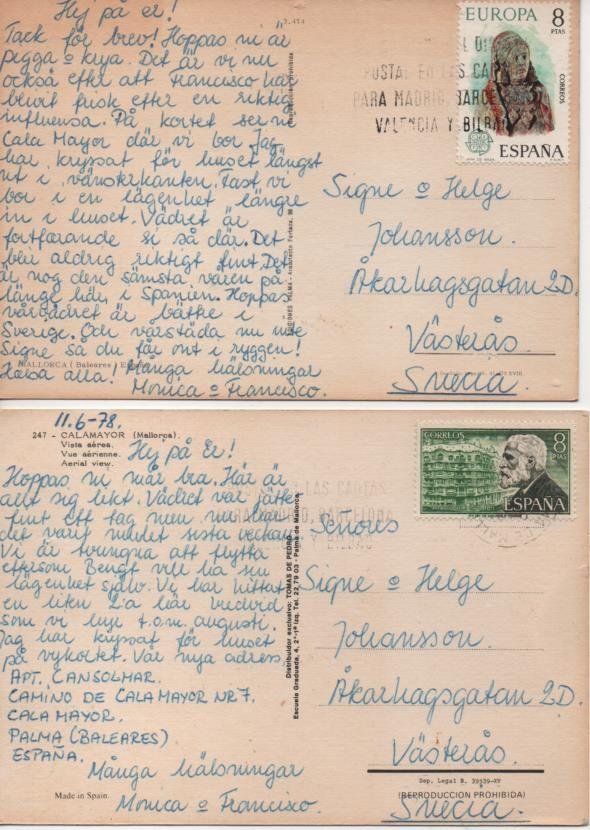 Hej på er!
Tack för brev! Hoppas ni är
pigga o krya. Det är vi nu
också efter att Francisco har
blivit frisk efter en riktig
influensa. På kortet ser ni
Cala Mayor där vi bor. Jag
har kryssat för huset längst
ut i vänsterkanten. Fast vi
bor i en lägenhet längre
in i huset. Vädret är
fortfarande si så där. Det
blir aldrig riktigt fint. Det
är nog den sämsta våren på
länge här i Spanien. Hoppas
vårvädret är bättre i
Sverige. Och vårstäda nu inte
Signe så du får ont i ryggen!
MALLORCA (Baleares)
Hälsa alla! Många hälsningar
Monica o Francisco.
EUROPA 8
PTAS
CORREOS
ESPAÑA
POSTAL EN LAS
PARA MADRID, BARCE
VALENCIA Y BILBAO
Signe o Helge
Johansson.
Åkarhagsgatan 2D.
Västerås.
Suecia.
11.6-78.
247 - CALAMAYOR (Mallorca).
Vista aérea.
Vue aérienne.
Aerial view.
Hej på Er!
Hoppas ni mår bra. Här är
allt sig likt. Vädret var bättre
fint ett tag men nu har
det varit mulet sista veckan.
Vi är tvungna att flytta
eftersom Bengt vill ha sin
lägenhet själv. Vi har hittat
en liten 2:a här bredvid
som vi hyr t.o.m. augusti.
Jag har kryssat för huset
på vykortet. Vår nya adress
APT. CANSOLMAR.
CAMINO DE CALA MAYOR NR 7.
CALA MAYOR.
PALMA (BALEARES)
ESPAÑA.
Många Hälsningar
Monica o Francisco.
Made in Spain.
Distribuidor exclusivo: TOMAS DE PEDRO.
Escuela Graduada, 4, 2º-1ª Izq. Tel. 22 79 03 - Palma de Mallorca
CORREOS
8
PTAS
ESPAÑA
LAS CARTAS
PARA MADRID, BARCELONA
Y BILBAO
Señores
Signe o Helge
Johansson.
Åkarhagsgatan 2D.
Västerås.
Dep. Legal B. 39539-XV
(REPRODUCCION PROHIBIDA)
Suecia.